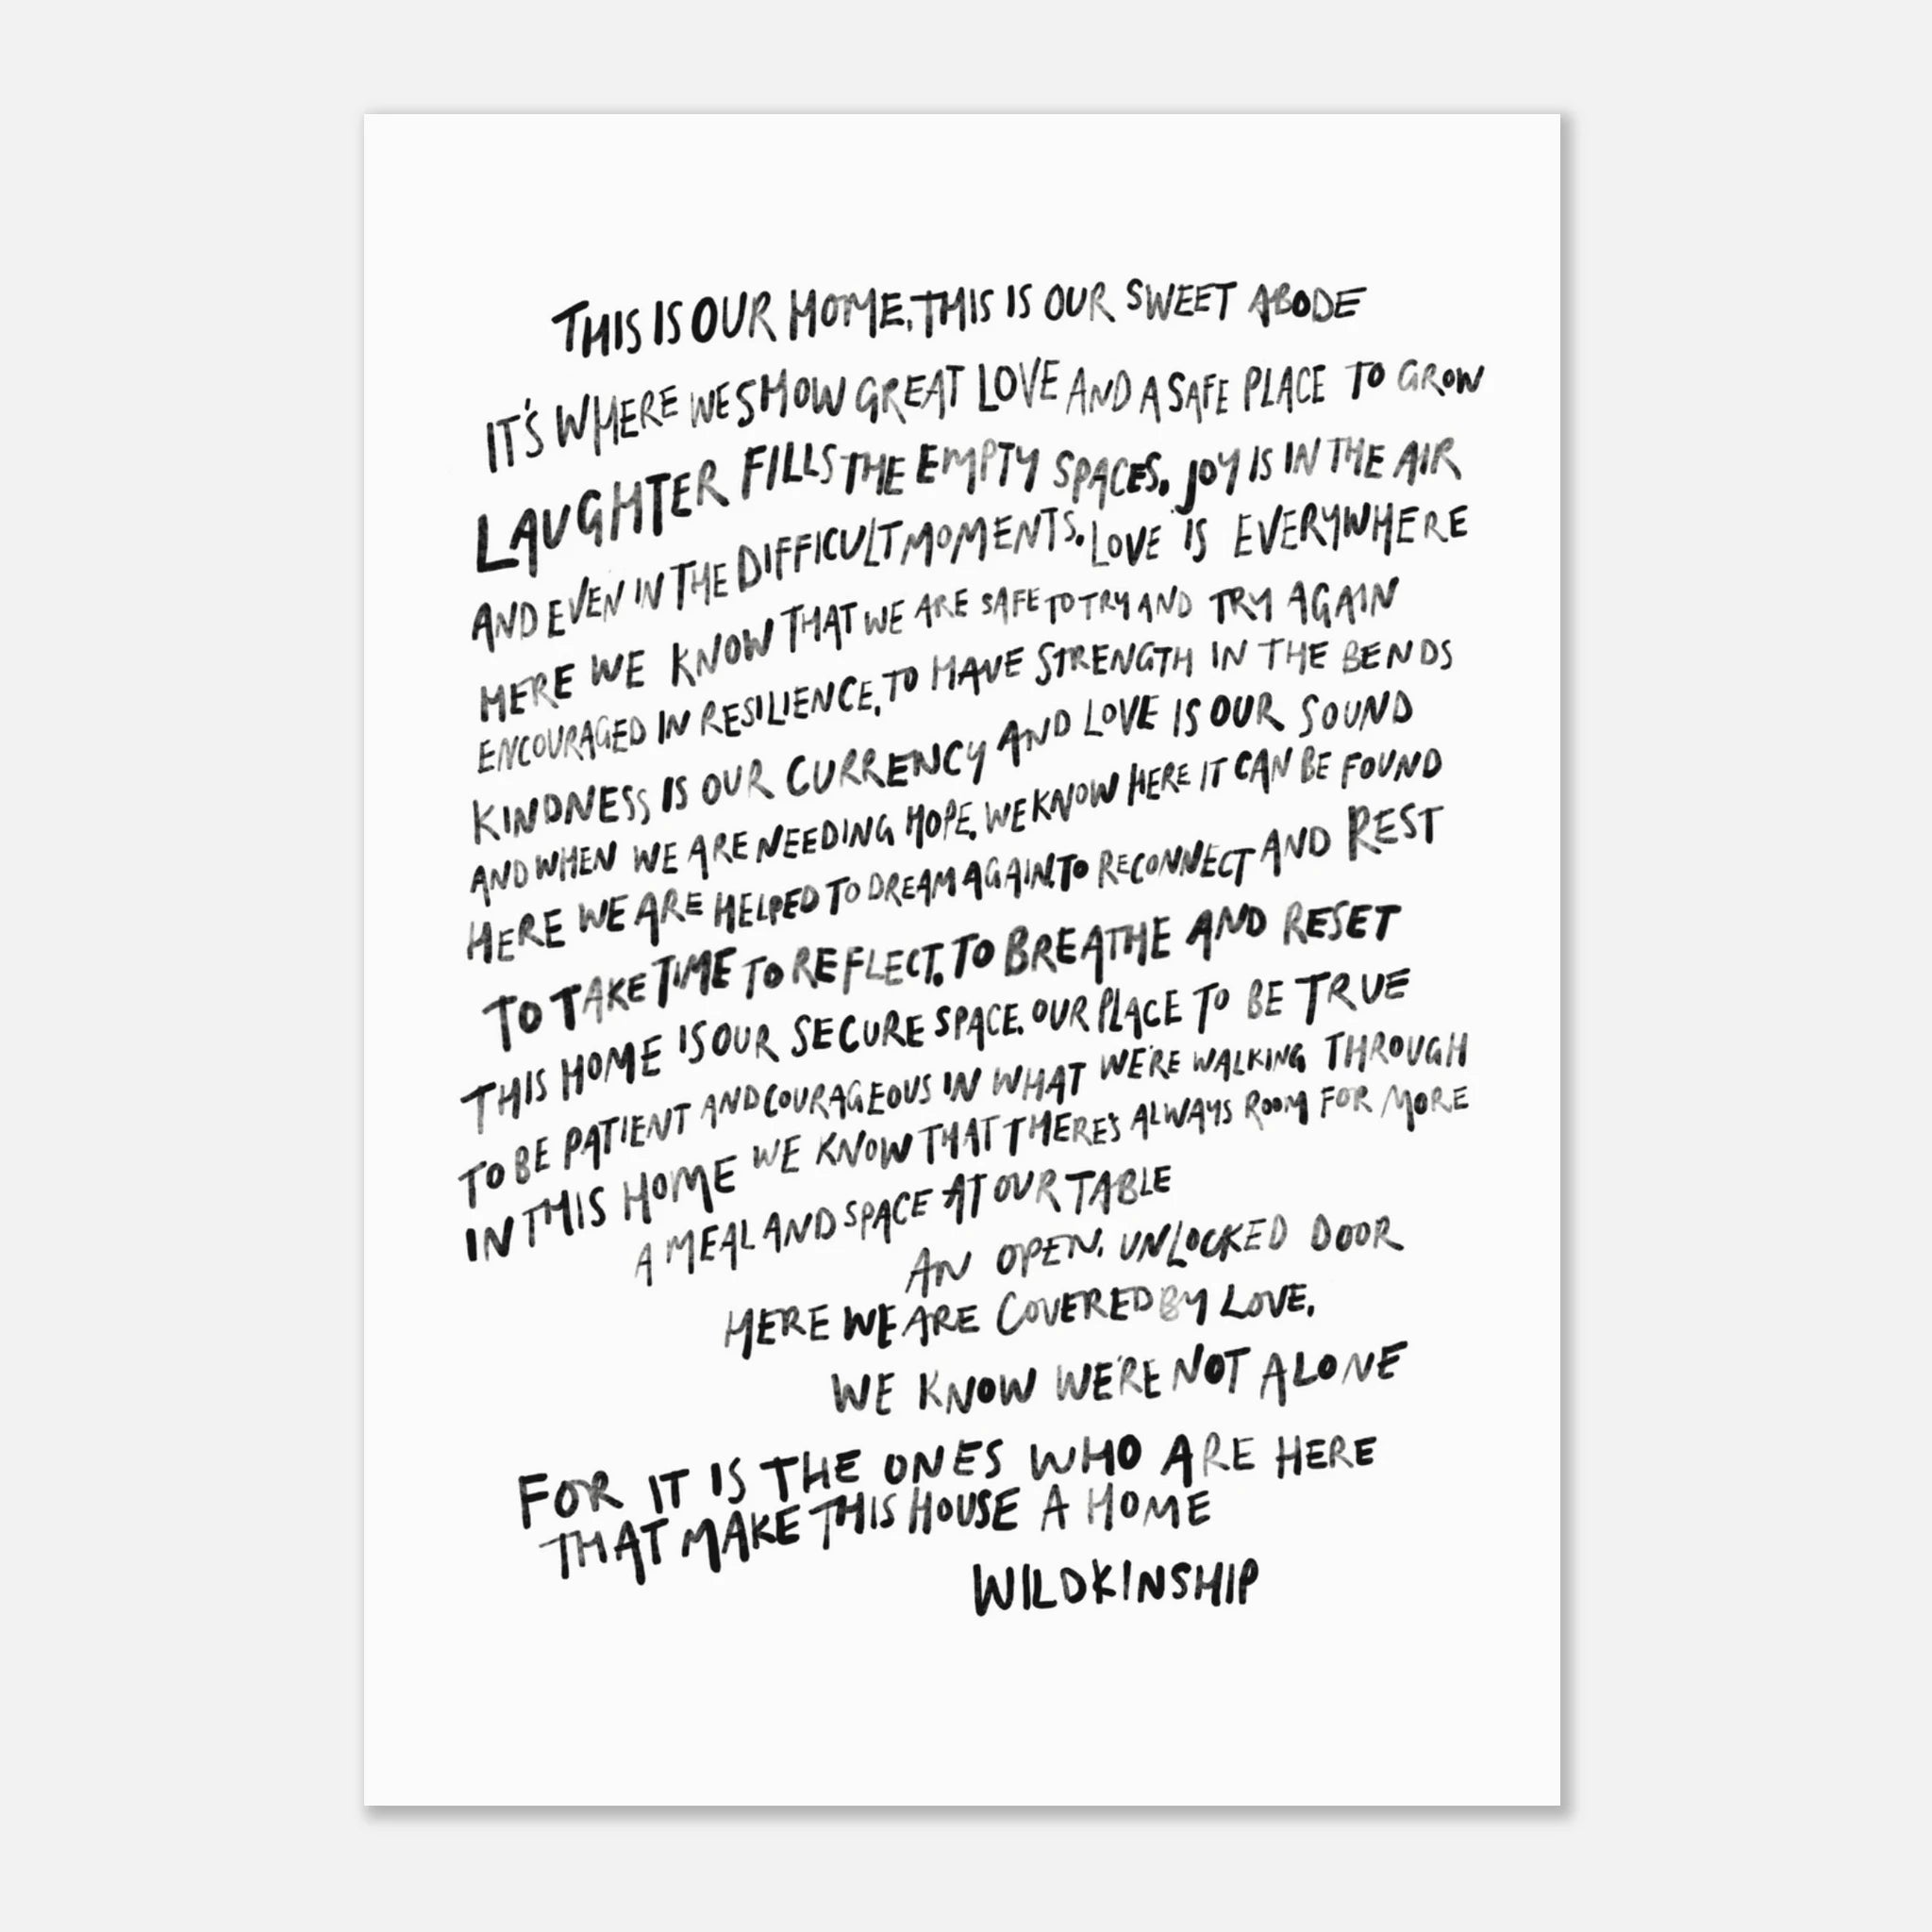 THIS IS OUR HOME, THIS IS OUR SWEET ABODE
IT'S WHERE WE SHOW GREAT LOVE AND A SAFE PLACE TO GROW
LAUGHTER FILLS THE EMPTY SPACES, JOY IS IN THE AIR
AND EVEN IN THE DIFFICULT MOMENTS, LOVE IS EVERYWHERE
HERE WE KNOW THAT WE ARE SAFE TO TRY AND TRY AGAIN
ENCOURAGED IN RESILIENCE, TO HAVE STRENGTH IN THE BENDS
KINDNESS IS OUR CURRENCY AND LOVE IS OUR SOUND
AND WHEN WE ARE NEEDING HOPE, WE KNOW HERE IT CAN BE FOUND
HERE WE ARE HELPED TO DREAM AGAIN, TO RECONNECT AND REST
TO TAKE TIME TO REFLECT, TO BREATHE AND RESET
THIS HOME IS OUR SECURE SPACE, OUR PLACE TO BE TRUE
TO BE PATIENT AND COURAGEOUS IN WHAT WE'RE WALKING THROUGH
IN THIS HOME WE KNOW THAT THERE'S ALWAYS ROOM FOR MORE
A MEAL AND SPACE AT OUR TABLE
AN OPEN, UNLOCKED DOOR
HERE WE ARE COVERED BY LOVE,
WE KNOW WE'RE NOT ALONE
FOR IT IS THE ONES WHO ARE HERE
THAT MAKE THIS HOUSE A HOME
WILDKINSHIP